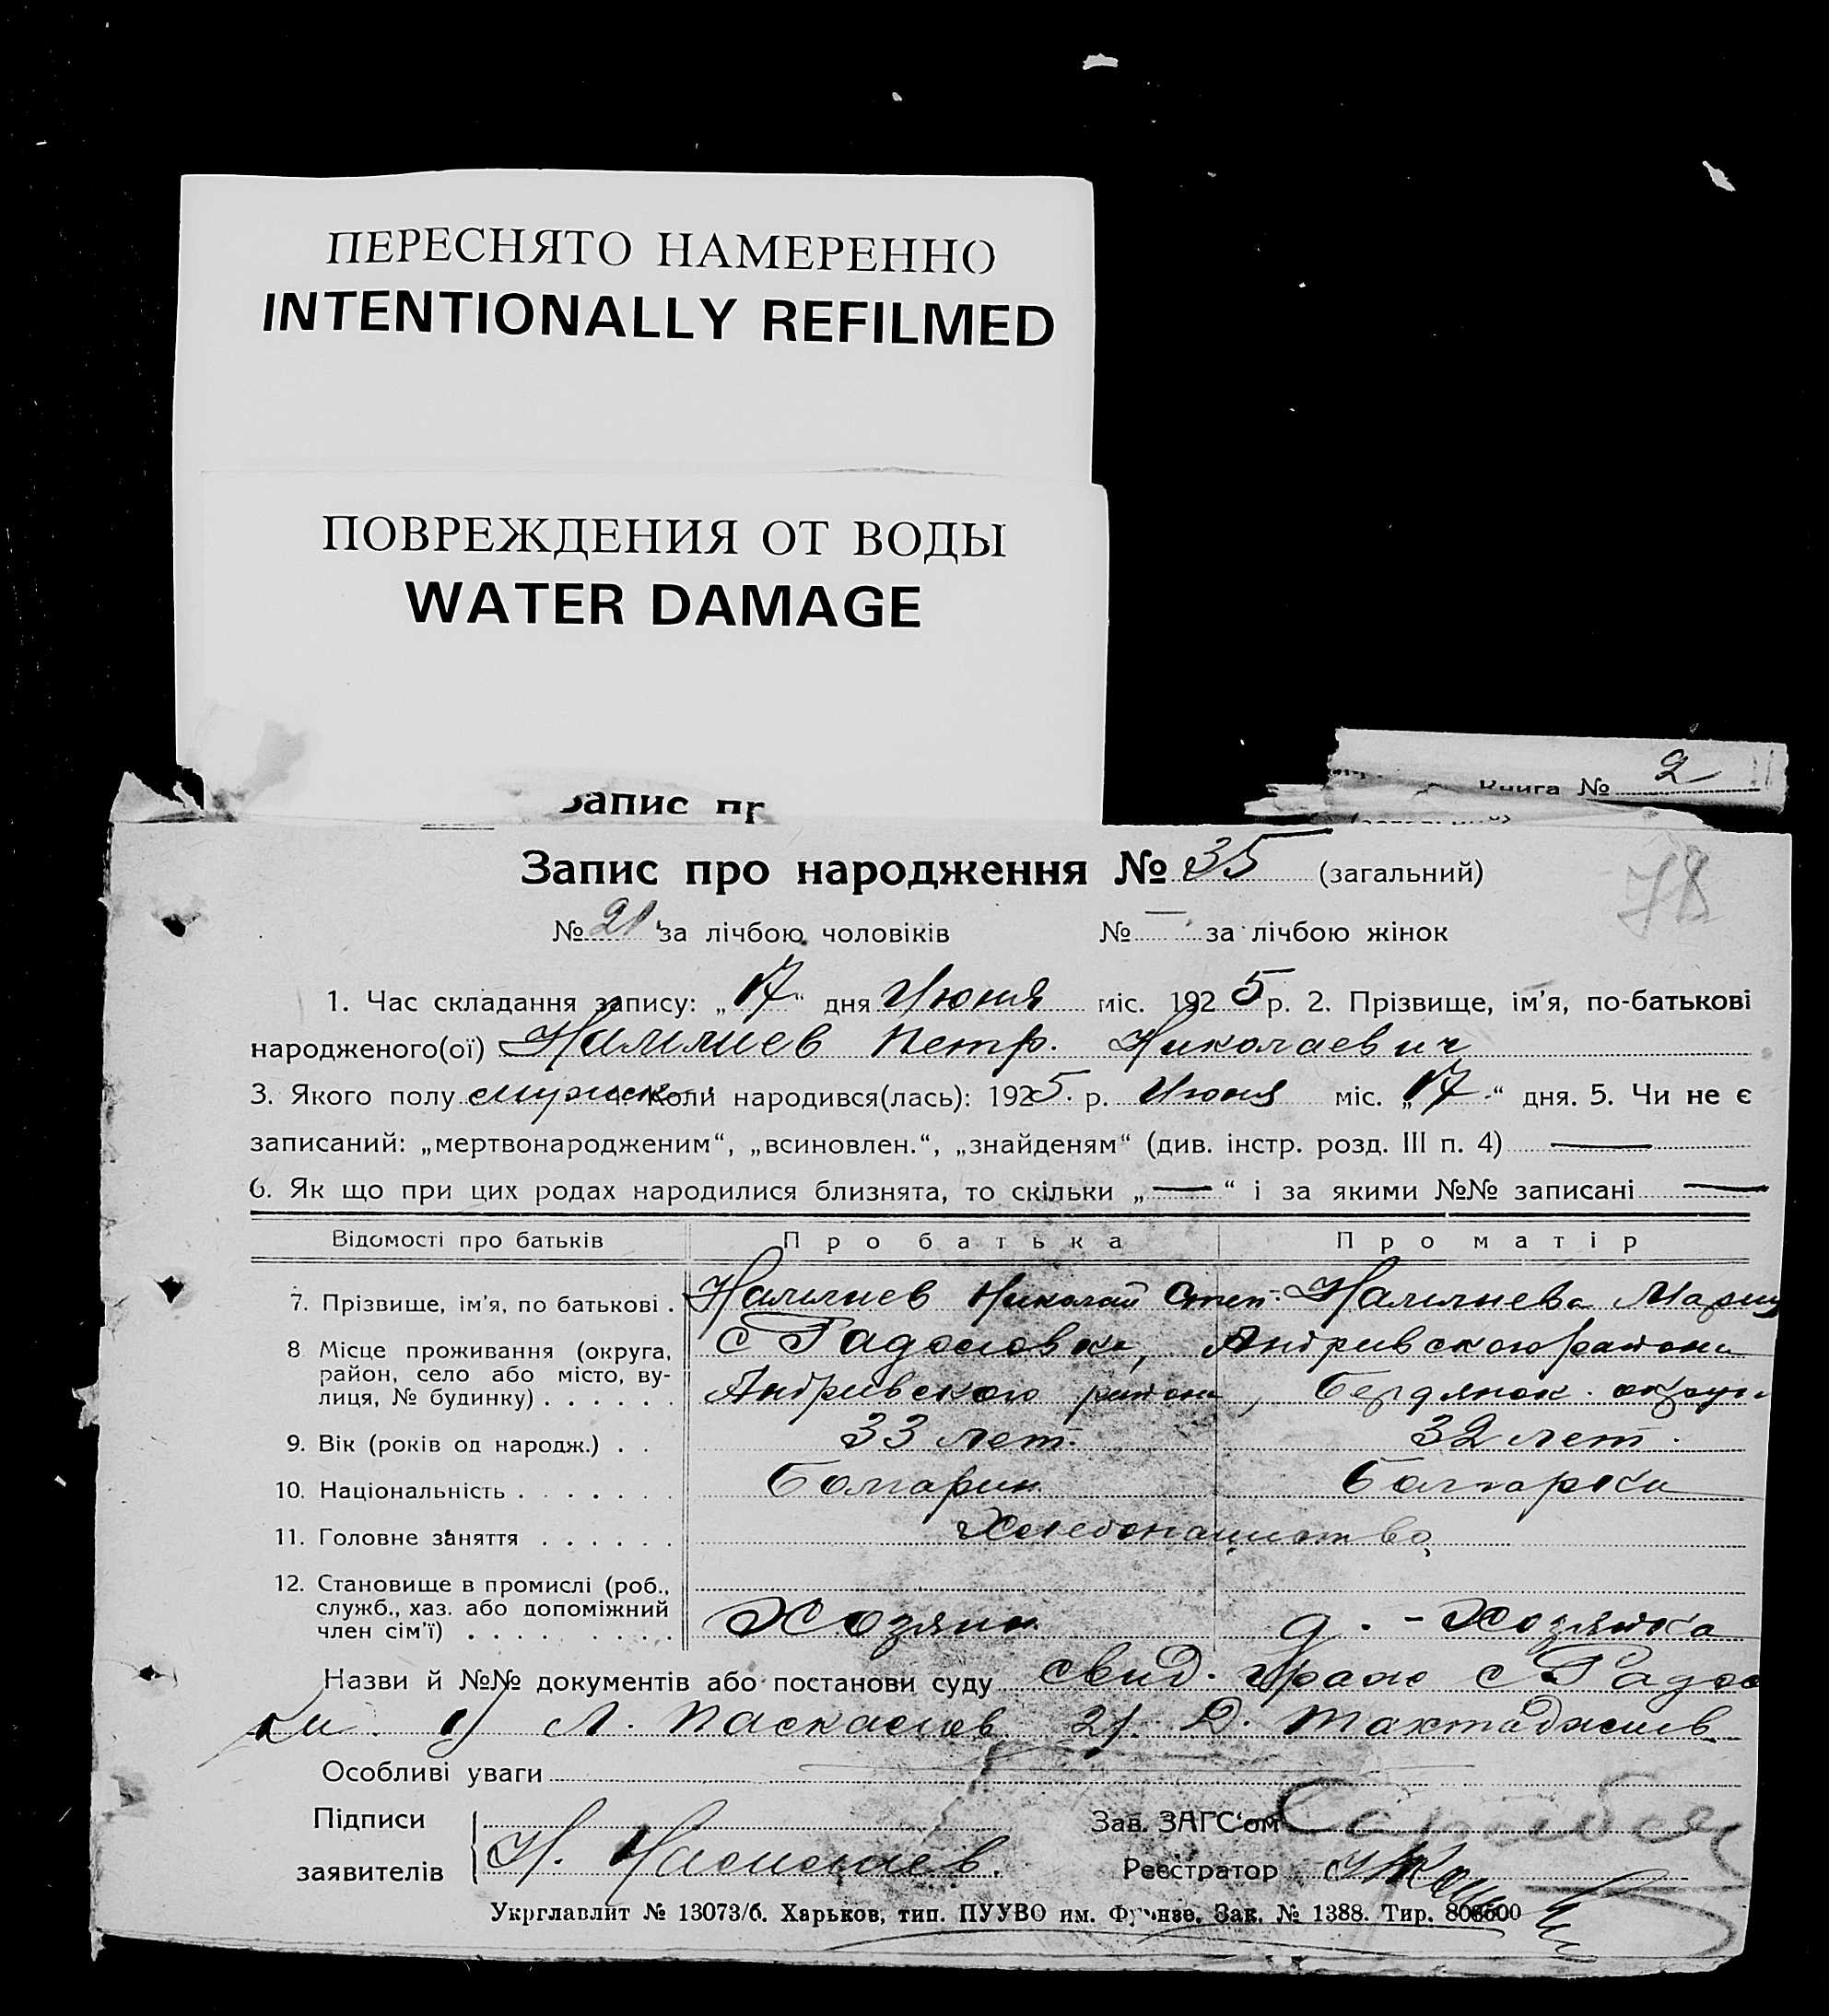 ПЕРЕСНЯТО НАМЕРЕННО
INTENTIONALLY REFILMED
ПОВРЕЖДЕНИЯ ОТ ВОДЫ
WATER DAMAGE
Запис пр
Книга № 2
Запис про народження № 35 (загальний)
78
№ 21 за лічбою чоловіків № — за лічбою жінок
1. Час складання запису: „17“ дня Июня міс. 1925 р. 2. Прізвище, ім'я, по-батькові
народженого(ої) Петр. Николаевич
3. Якого полу мужск. 4. Коли народився(лась): 1925. р. Июня міс. „17“ дня. 5. Чи не є
записаний: „мертвонародженим“, „всиновлен.“, „знайденям“ (див. інстр. розд. III п. 4) —
6. Як що при цих родах народилися близнята, то скільки „—“ і за якими №№ записані —
Відомості про батьків Про батька Про матір
7. Прізвище, ім'я, по батькові . Николай Степ. Мария
8 Місце проживання (округа, с Радоловка, Андривского района
район, село або місто, ву-
лиця, № будинку) . . . . . . Андривского района, Бердянск. округи
9. Вік (років од народж.) . . 33 лет. 32 лет.
10. Національність . . . . . . . Болгарин Болгарка
11. Головне заняття . . . . . . Хлебопашество
12. Становище в промислі (роб.,
служб., хаз. або допоміжний
член сім'ї) . . . . . . . . . Хозяин д. - Хозяйка
Назви й №№ документів або постанови суду свид. граж с
ки 1) Л. Паскалов 2) Д. Тахтаджиев
Особливі уваги
Підписи Зав. ЗАГС'ом
заявителів Н. Реєстратор
Укрглавлит № 13073/б. Харьков, тип. ПУУВО им. Фрунзе. Зак. № 1388. Тир. 808600